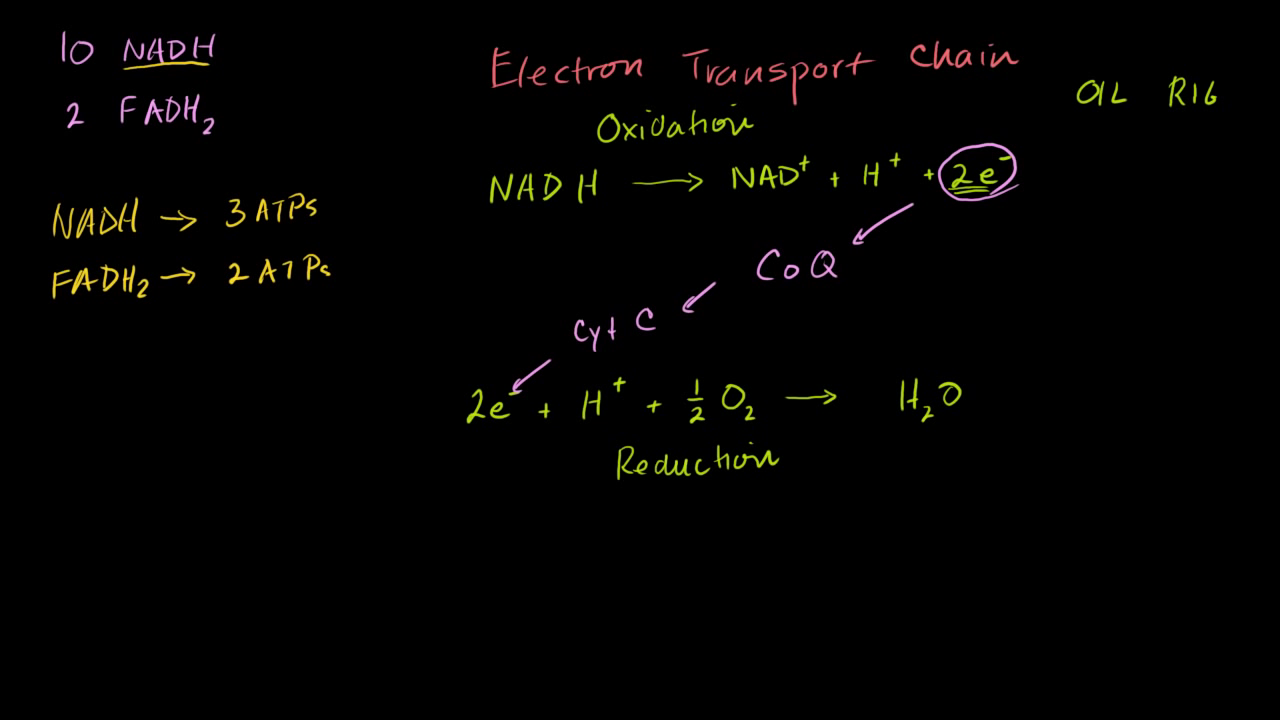 10 NADH
2 FADH₂
NADH → 3 ATPs
FADH₂ → 2 ATPs
Electron Transport Chain
OIL RIG
Oxidation
NADH → NAD⁺ + H⁺ + 2e⁻
CoQ
Cyt C
2e⁻ + H⁺ + ½ O₂ → H₂O
Reduction